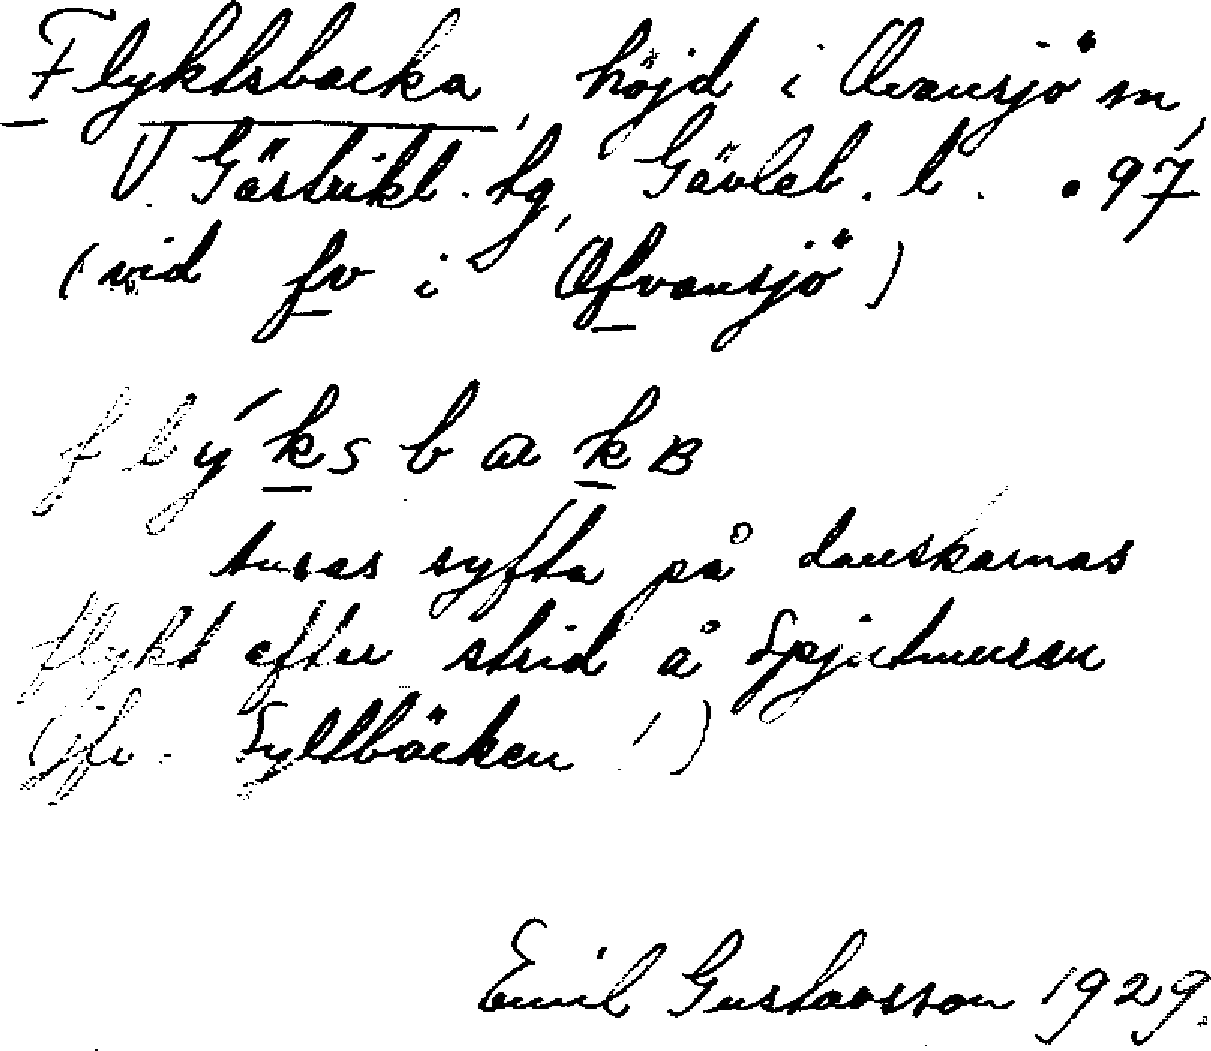 Flyktsbacka, höjd i Ovansjö sn,
V. Gästrikl. tg, Gävleb. l. .97
(vid fv i Ofvansjö)
flýksbakB
tusas syfta på danskarnas
flykt efter strid å Spjutmuren
(jfr. Syltbäcken !)
Emil Gustavsson 1929.